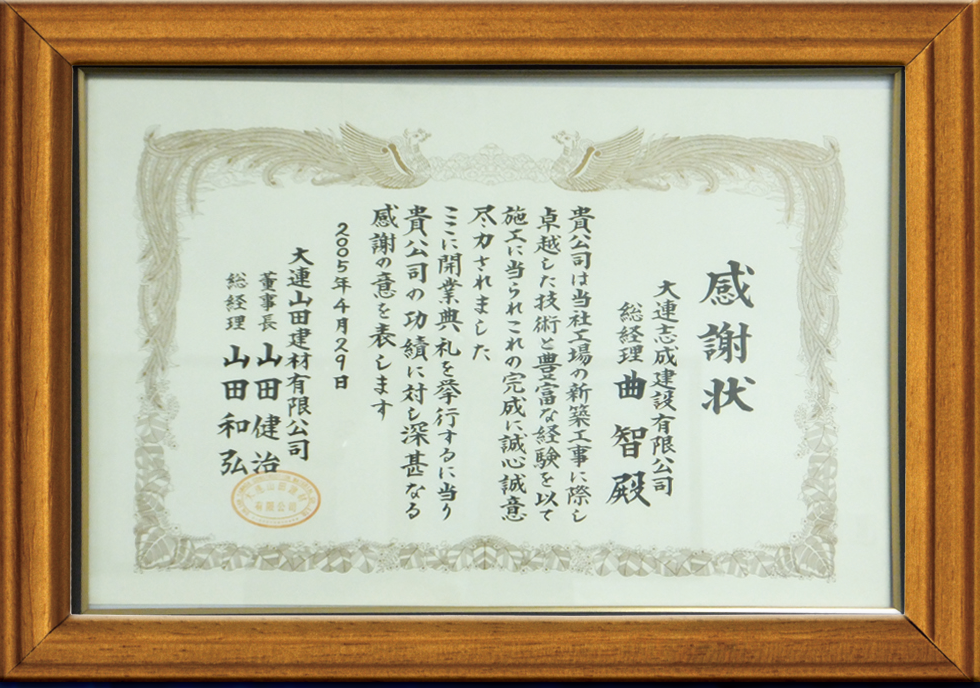 感謝状
大連志成建設有限公司
総経理 曲智殿
貴公司は当社工場の新築工事に際し
卓越した技術と豊富な経験を以て
施工に当られこれの完成に誠心誠意
尽力されました
ここに開業典礼を挙行するに当り
貴公司の功績に対し深甚なる
感謝の意を表します
2005年4月29日
大連山田建材有限公司
董事長 山田健治
総経理 山田和弘
有限公司